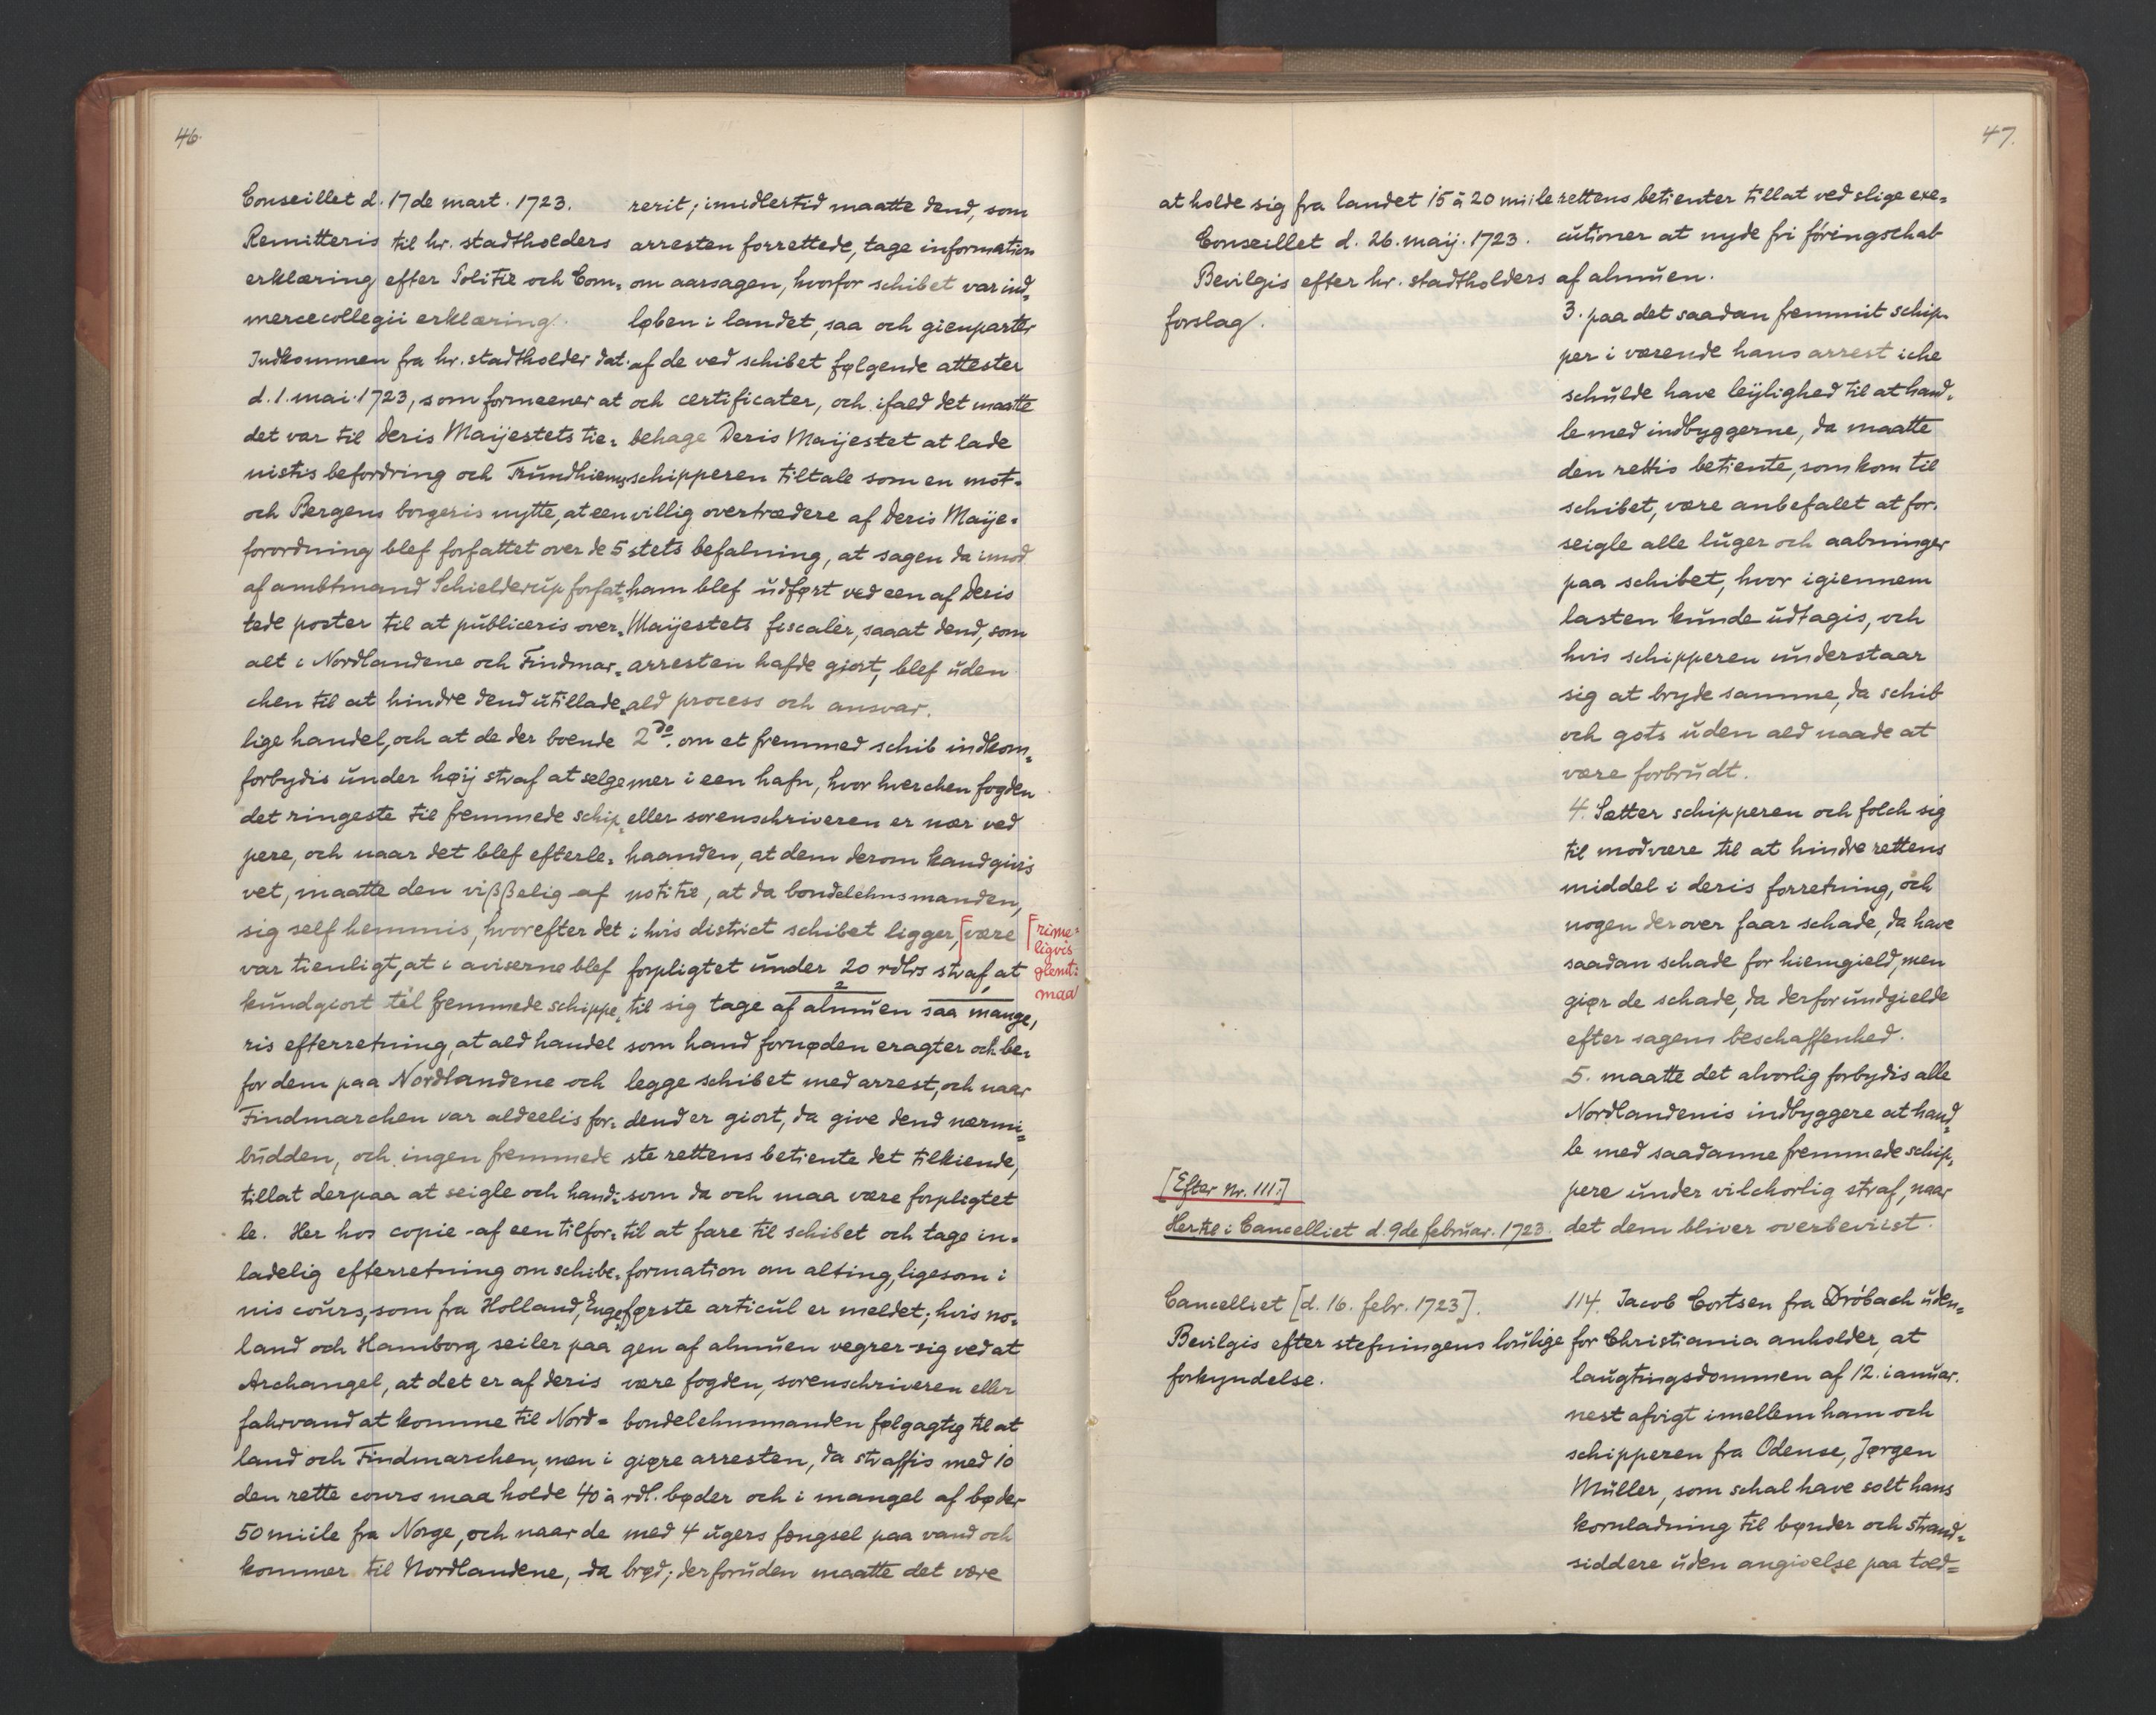 46.
Conseillet d. 17de mart. 1723.
Remitteris til hr. stadtholders
erklæring efter Politie och Com=
mercecollegii erklæring.
Indkommen fra hr. stadtholder dat.
d. 1. mai. 1723, som formeener at
det var til Deris Maijestets tie=
nistis befordring och Trundhiems
och Bergens borgeris nytte, at een
forordning blef forfattet over de 5
af ambtmand Schielderup forfat=
tede poster til at publiceris over=
alt i Nordlandene och Findmar=
chen til at hindre dend utillade=
lige handel, och at de der boende
forbydis under høij straf at selge
det ringeste til fremmede schip=
pere, och naar det blef efterle=
vet, maatte den vißßelig af
sig self hemmis, hvorefter det
var tienligt, at i aviserne blef
kundgiort til fremmede schippe=
ris efterretning, at ald handel
for dem paa Nordlandene och
Findmarchen var aldeelis for=
budden, och ingen fremmede
tillat derpaa at seigle och hand=
le. Her hos copie af een tilfor=
ladelig efterretning om schibe=
nis cours, som fra Holland, Enge=
land och Hamborg seiler paa
Archangel, at det er af deris
fahrvand at komme til Nord=
land och Findmarchen, men i
den rette cours maa holde 40 à
50 miile fra Norge, och naar de
kommer til Nordlandene, da
rerit; imidlertid maatte dend, som
arresten forrettede, tage information
om aarsagen, hvorfor schibet var ind=
løben i landet, saa och gienparter
af de ved schibet følgende attester
och certificater, och ifald det maatte
behage Deris Maijestet at lade
schipperen tiltale som en mot=
villig overtrædere af Deris Maije=
stets befalning, at sagen da imod
ham blef udført ved een af Deris
Maijestets fiscaler, saaat dend, som
arresten hafde giort, blef uden
ald process och ansvar.
2do. om et fremmed schib indkom=
mer i een hafn, hvor hverchen fogden
eller sorenschriveren er nær ved
haanden, at dem derom kand givis
notitie, at da bondelehnsmanden,
i hvis district schibet ligger, [være
forpligtet under 20 rdlrs straf, at
til sig tage af almuen saa mange,
som hand fornøden eragter och be=
legge schibet med arrest, och naar
dend er giort, da give dend nærmi=
ste rettens betiente det tilkiende,
som da och maa være forpligtet
til at fare til schibet och tage in=
formation om alting, ligesom i
første articul er meldet; hvis no=
gen af almuen vegrer sig ved at
være fogden, sorenschriveren eller
bondelehnsmanden følgagtig til at
giøre arresten, da straffis med 10
rdl. bøder och i mangel af bøder
med 4 ugers fengsel paa vand och
brød; derforuden maatte det være
[rime=
ligvis
glemt:
maa
47.
at holde sig fra landet 15 à 20 miile
Conseillet d. 26. maij. 1723.
Bevilgis efter hr. stadtholders
forslag.
[Efter Nr. 111:]
Hertil i Cancelliet d. 9de februar. 1723.
Cancelliet [d. 16. febr. 1723].
Bevilgis efter stefningens loulige
forkyndelse.
rettens betienter tillat ved slige exe=
cutioner at nyde fri føringschab
af almuen.
3. paa det saadan fremmit schip=
per i værende hans arrest iche
schulde have leijlighed til at hand=
le med indbyggerne, da maatte
den rettis betiente, som kom til
schibet, være anbefalet at for=
seigle alle luger och aabninger
paa schibet, hvor igiennem
lasten kunde udtagis, och
hvis schipperen understaar
sig at bryde samme, da schib
och gots uden ald naade at
være forbrudt.
4. Sætter schipperen och folch sig
til modvære til at hindre rettens
middel i deris forretning, och
nogen derover faar schade, da have
saadan schade for hiemgield, men
giør de schade, da derfor undgielde
efter sagens beschaffenhed.
5. maatte det alvorlig forbydis alle
Nordlandenis indbyggere at hand=
le med saadanne fremmede schip=
pere under vilchorlig straf, naar
det dem bliver overbeviist.
114. Jacob Cortsen fra Drøbach uden=
for Christiania anholder, at
laugtingsdommen af 12. ianuar.
nest afvigt imellem ham och
schipperen fra Odense, Jørgen
Müller, som schal have solt hans
kornladning til bønder och strand=
siddere uden angivelse paa told=